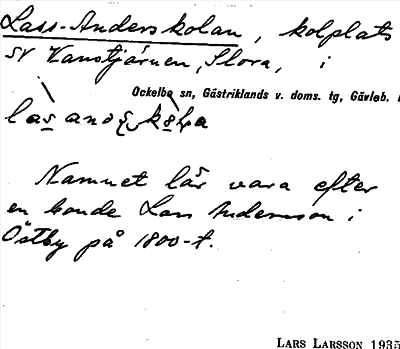 Lass-Anderskolan, kolplats
SV Vanstjärnen, Slora, i
Ockelbo sn, Gästriklands v. doms. tg, Gävleb.
Namnet lär vara efter
en bonde Lars Andersson i
Östby på 1800-t.
LARS LARSSON 1935